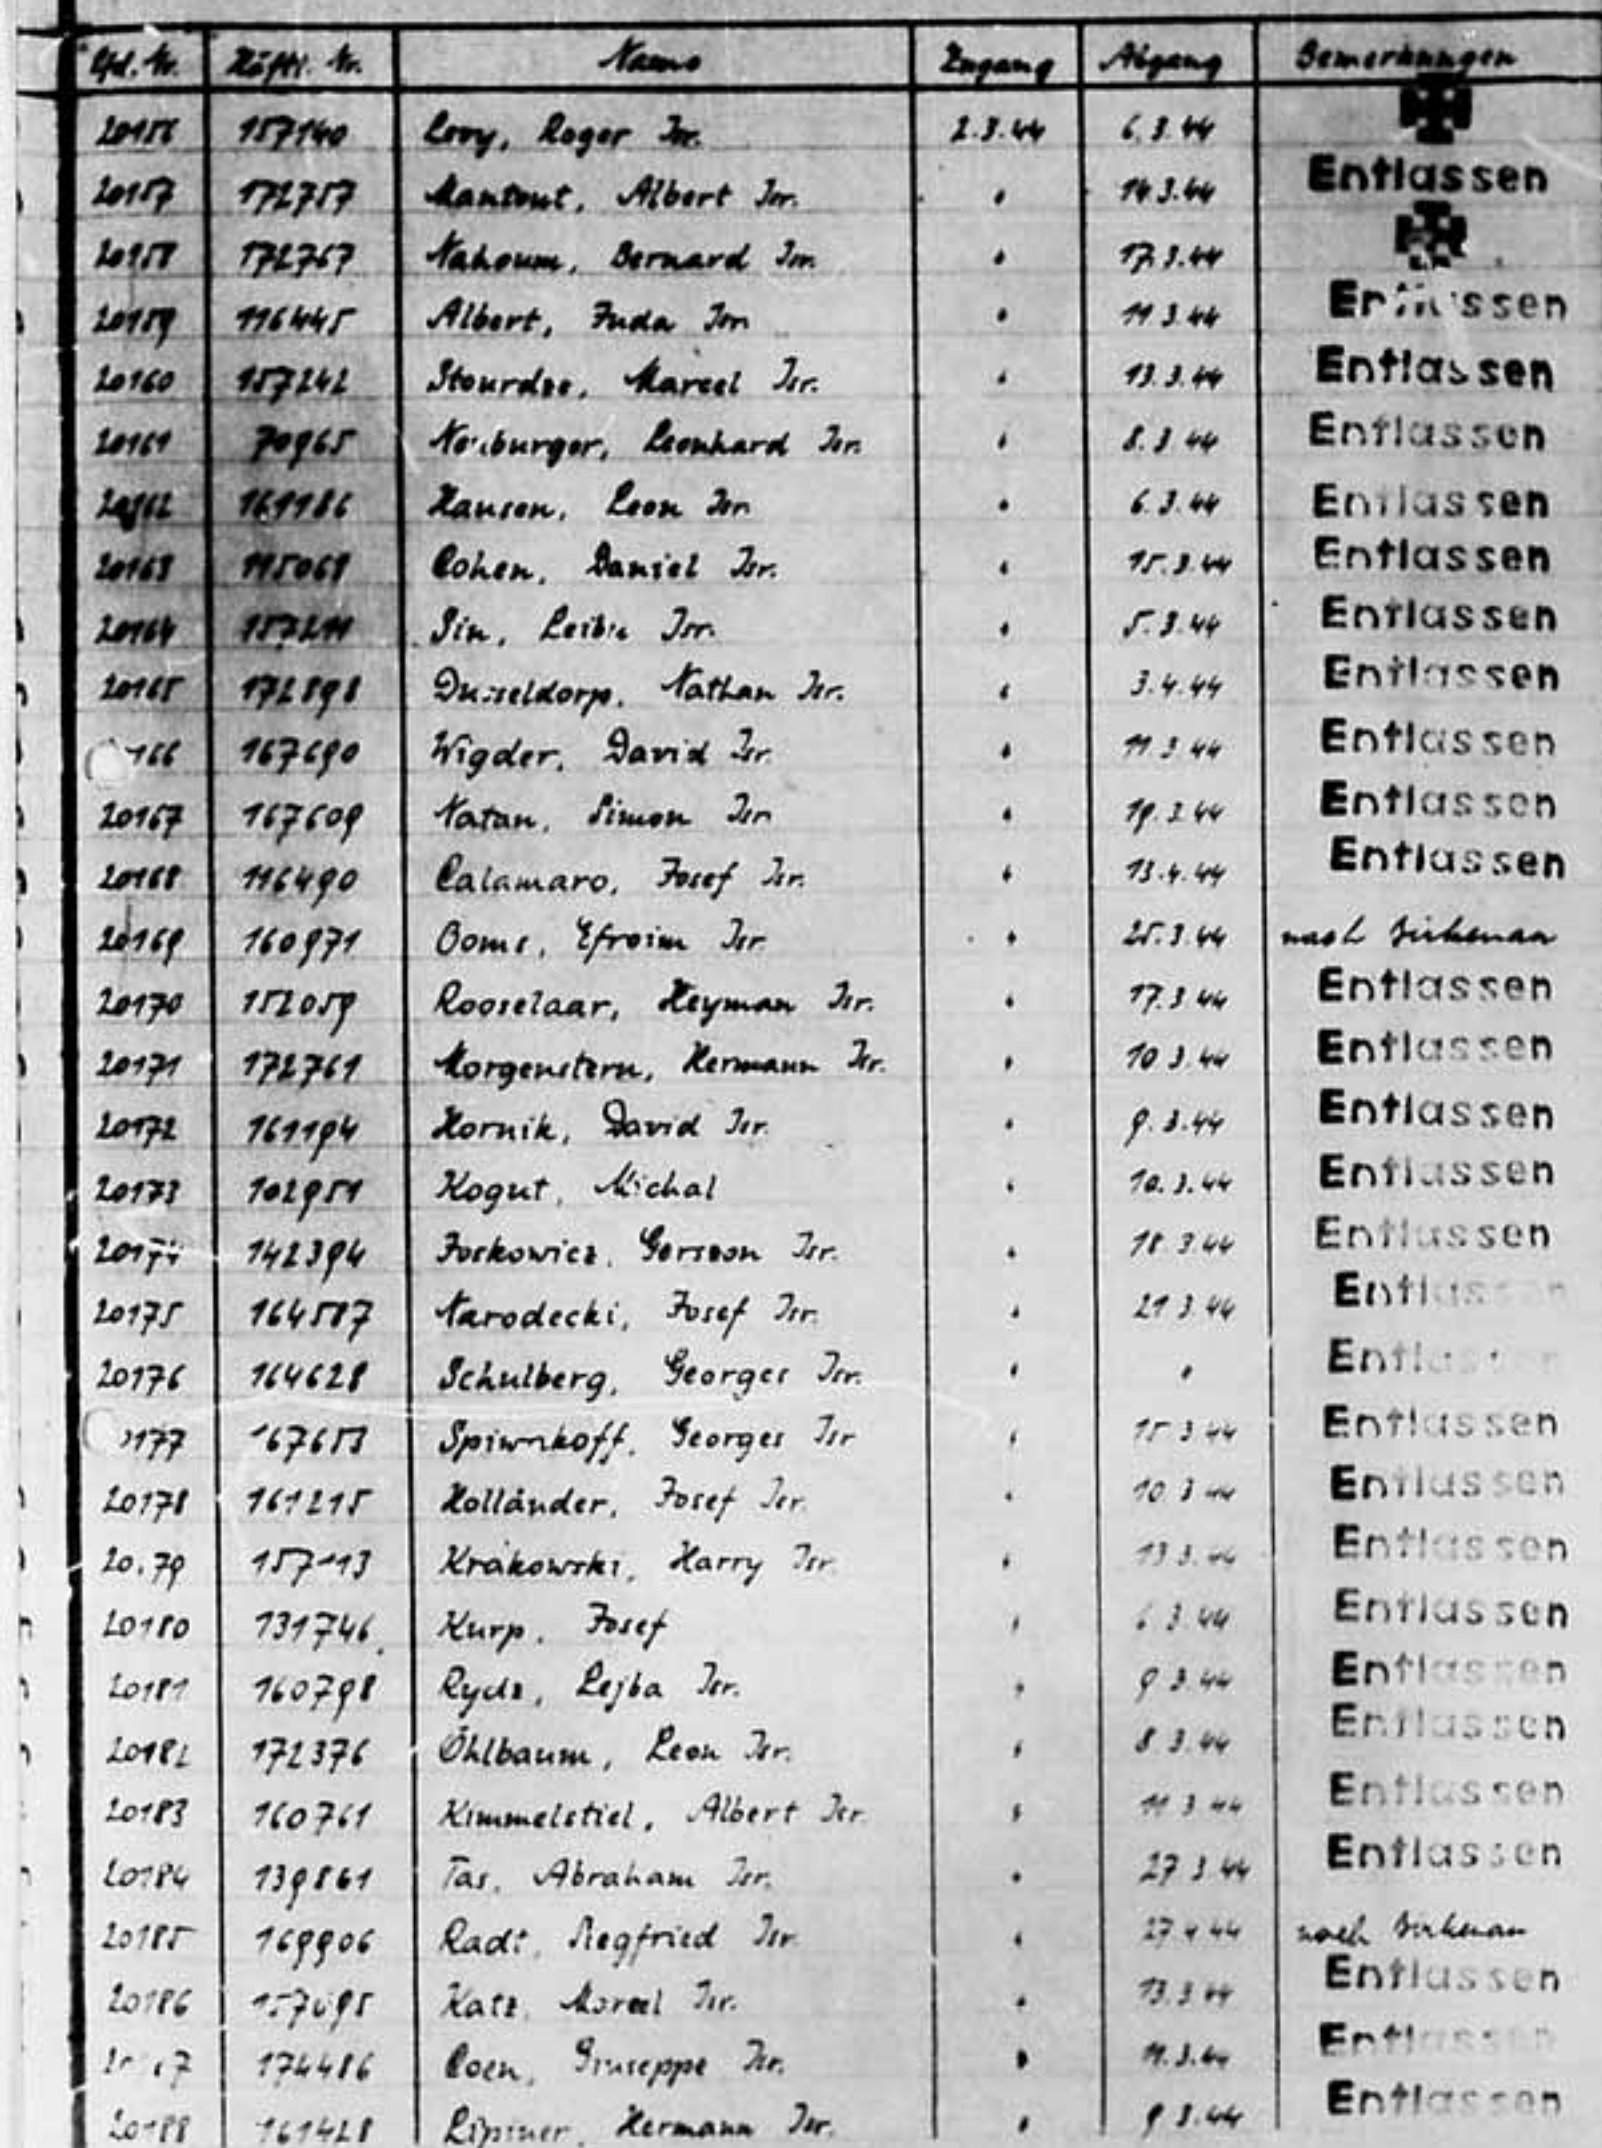 Lfd. Nr. Häftl. Nr. Name Zugang Abgang Bemerkungen
20156 157140 Levy, Roger Isr. 2.3.44 6.3.44
20157 172757 Mantout, Albert Isr. " 14.3.44 Entlassen
20158 172767 Nahoum, Bernard Isr. " 17.3.44
20159 116445 Albert, Juda Isr. " 11.3.44 Entlassen
20160 157242 Stourdze, Marcel Isr. " 13.3.44 Entlassen
20161 70965 Neuburger, Leonhard Isr. " 8.3.44 Entlassen
20162 161186 Hanson, Leon Isr. " 6.3.44 Entlassen
20163 115068 Cohen, Daniel Isr. " 15.3.44 Entlassen
20164 157211 Sin, Leibie Isr. " 5.3.44 Entlassen
20165 172898 Dusseldorp, Nathan Isr. " 3.4.44 Entlassen
166 167690 Wigder, David Isr. " 11.3.44 Entlassen
20167 167609 Natan, Simon Isr. " 19.3.44 Entlassen
20168 116490 Calamaro, Josef Isr. " 13.4.44 Entlassen
20169 160971 Ooms, Efroim Isr. " 25.3.44 nach Birkenau
20170 152059 Rooselaar, Heyman Isr. " 17.3.44 Entlassen
20171 172761 Morgenstern, Hermann Isr. " 10.3.44 Entlassen
20172 161194 Hornik, David Isr. " 9.3.44 Entlassen
20173 102951 Kogut, Michal " 10.3.44 Entlassen
20174 142394 Joskowicz, Gerszon Isr. " 18.3.44 Entlassen
20175 164587 Narodecki, Josef Isr. " 21.3.44 Entlassen
20176 164628 Schulberg, Georges Isr. " " Entlassen
177 167653 Georges Isr. " 15.3.44 Entlassen
20178 161215 Holländer, Josef Isr. " 10.3.44 Entlassen
20179 157113 Krakowski, Harry Isr. " 13.3.44 Entlassen
20180 131746 Kurp, Josef " 6.3.44 Entlassen
20181 160798 Rydz, Lejba Isr. " 9.3.44 Entlassen
20182 172376 Öhlbaum, Leon Isr. " 8.3.44 Entlassen
20183 160761 Kimmelstiel, Albert Isr. " 11.3.44 Entlassen
20184 139861 Tas, Abraham Isr. " 27.3.44 Entlassen
20185 169906 Radt, Siegfried Isr. " 27.4.44 nach Birkenau
20186 157095 Katz, Marcel Isr. " 13.3.44 Entlassen
174486 Coen, Giuseppe Isr. " 11.3.44 Entlassen
20188 161428 Hermann Isr. " 9.3.44 Entlassen